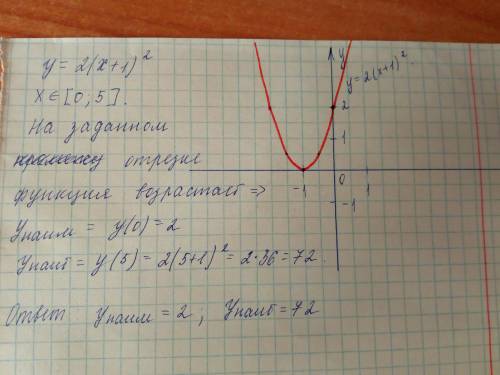 y = 2(x+1)²
x ∈ [0; 5].
На заданном
отрезке
функция возрастает =>
Yнаим = y(0) = 2
Yнаиб = y(5) = 2(5+1)² = 2·36 = 72.
Ответ Yнаим = 2; Yнаиб = 72
y
y = 2(x+1)².
2
1
-1
0
1
-1